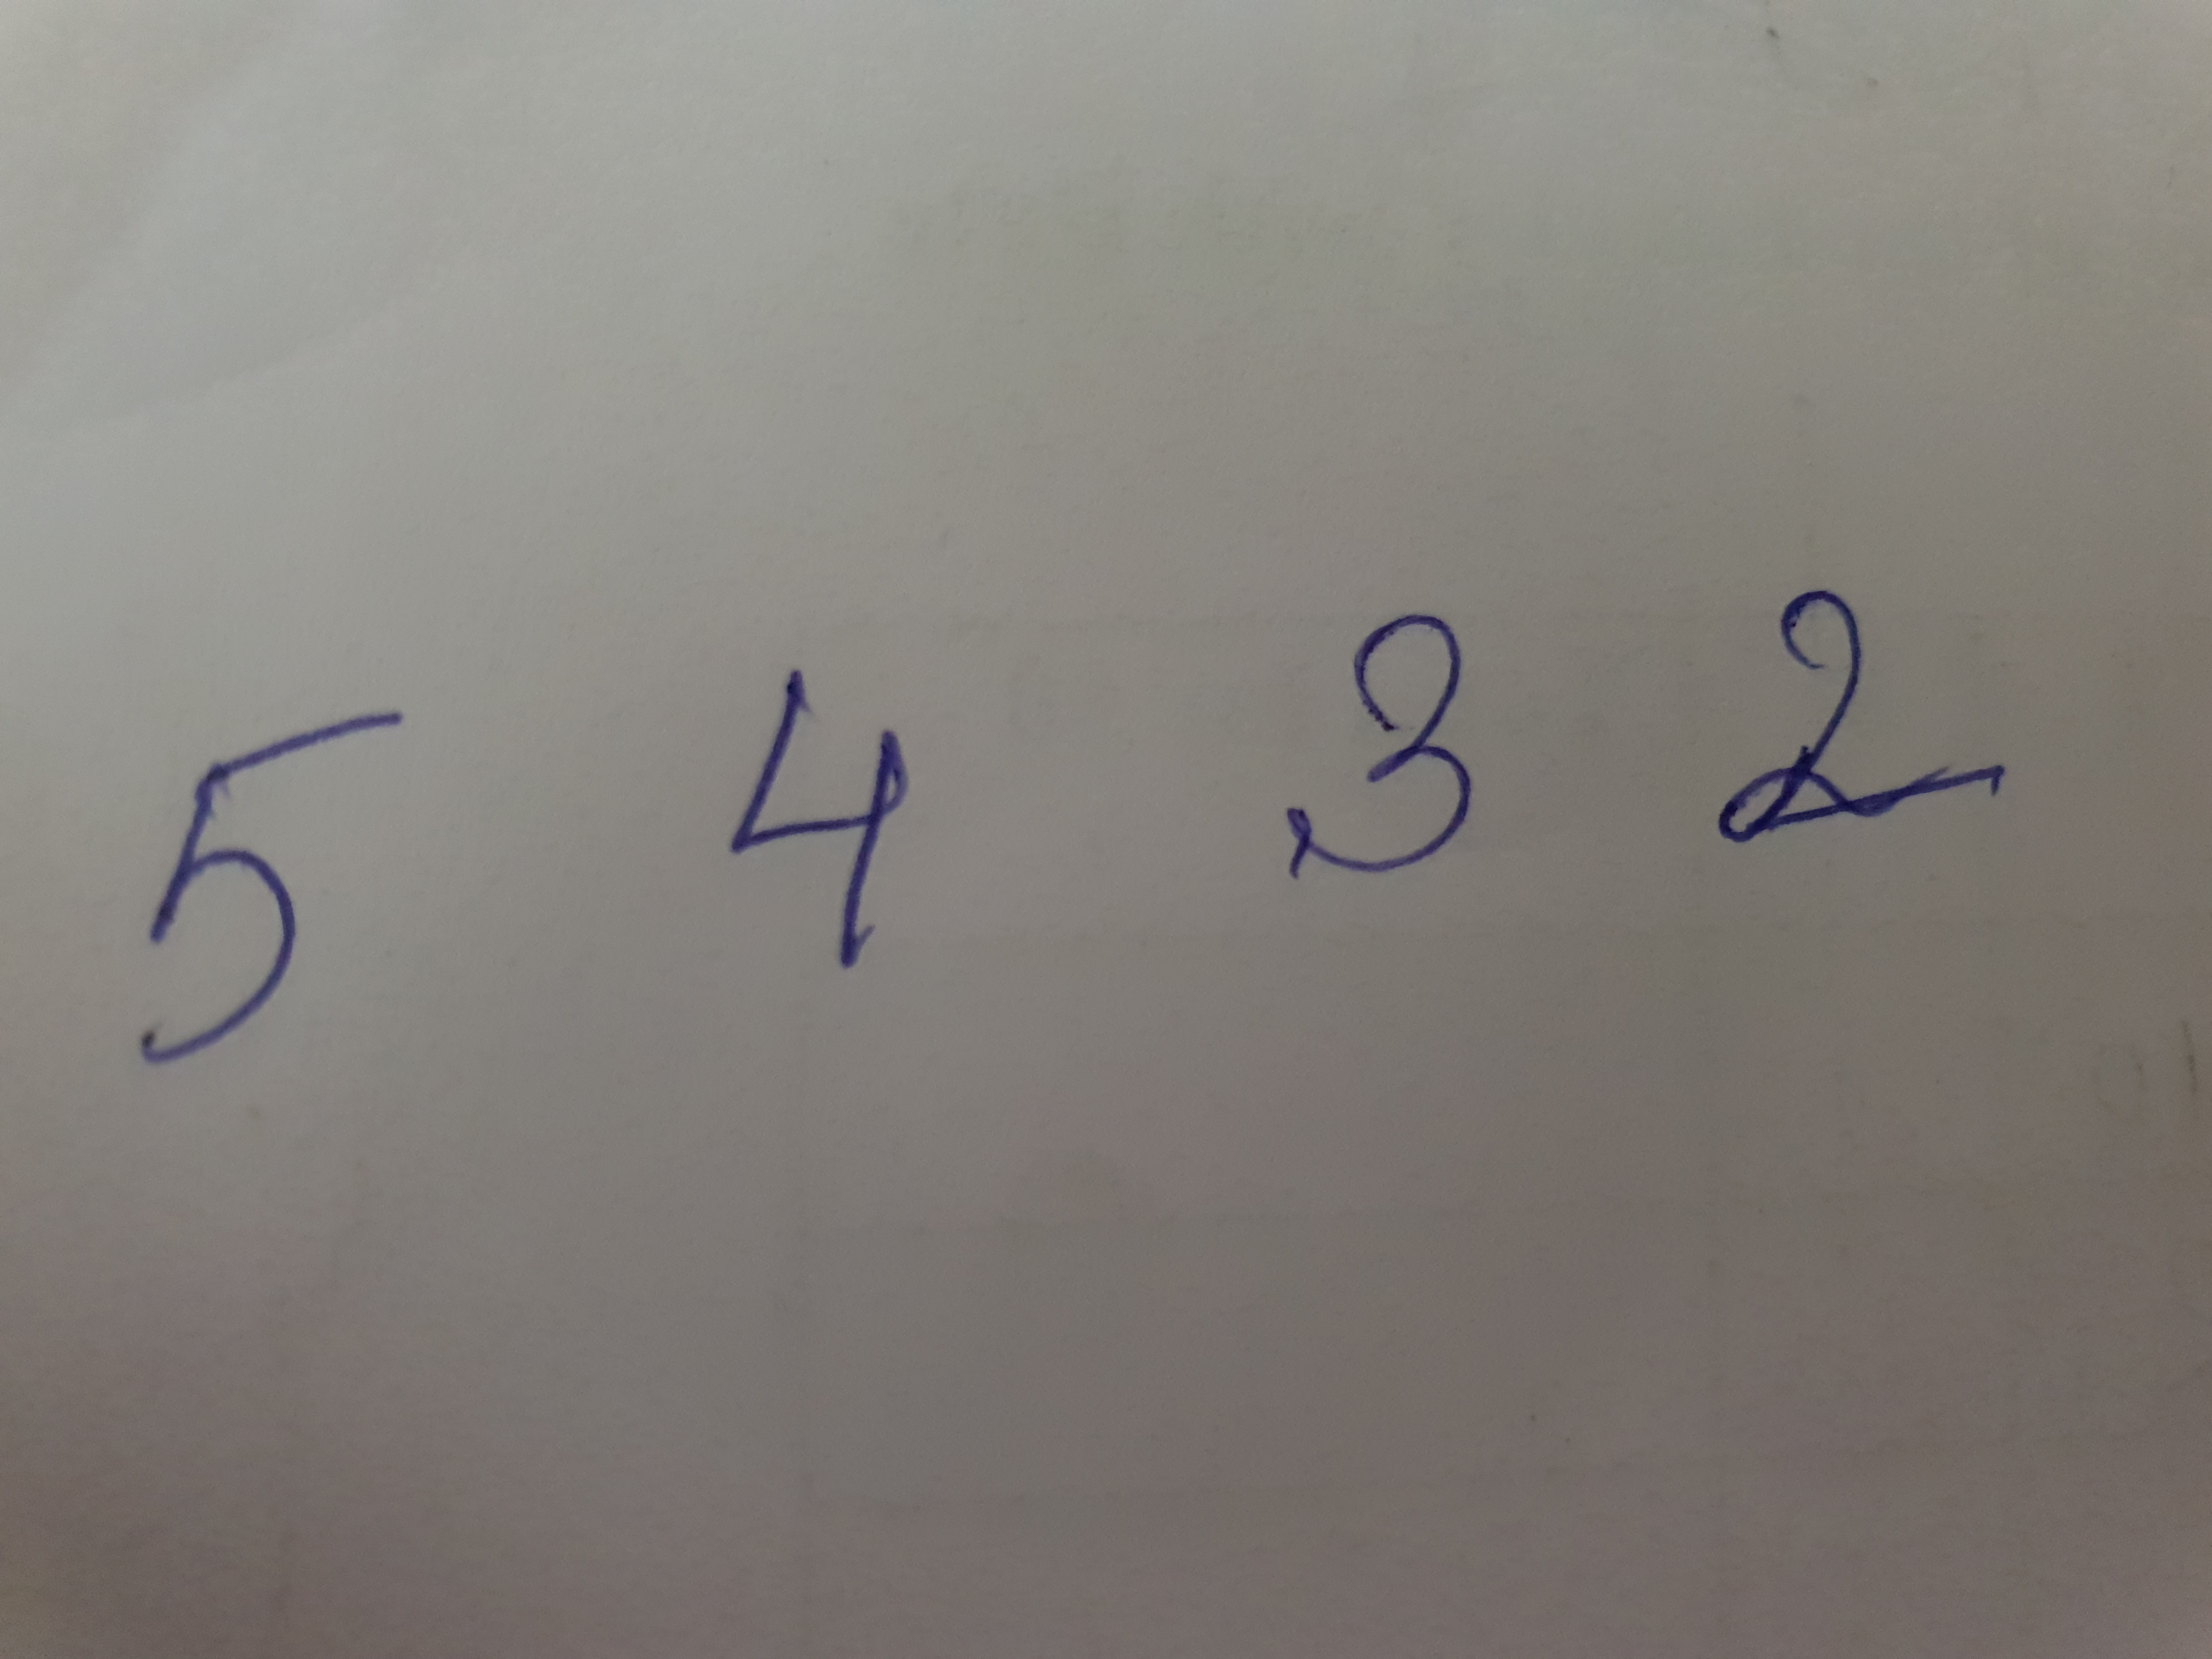 5 4 3 2